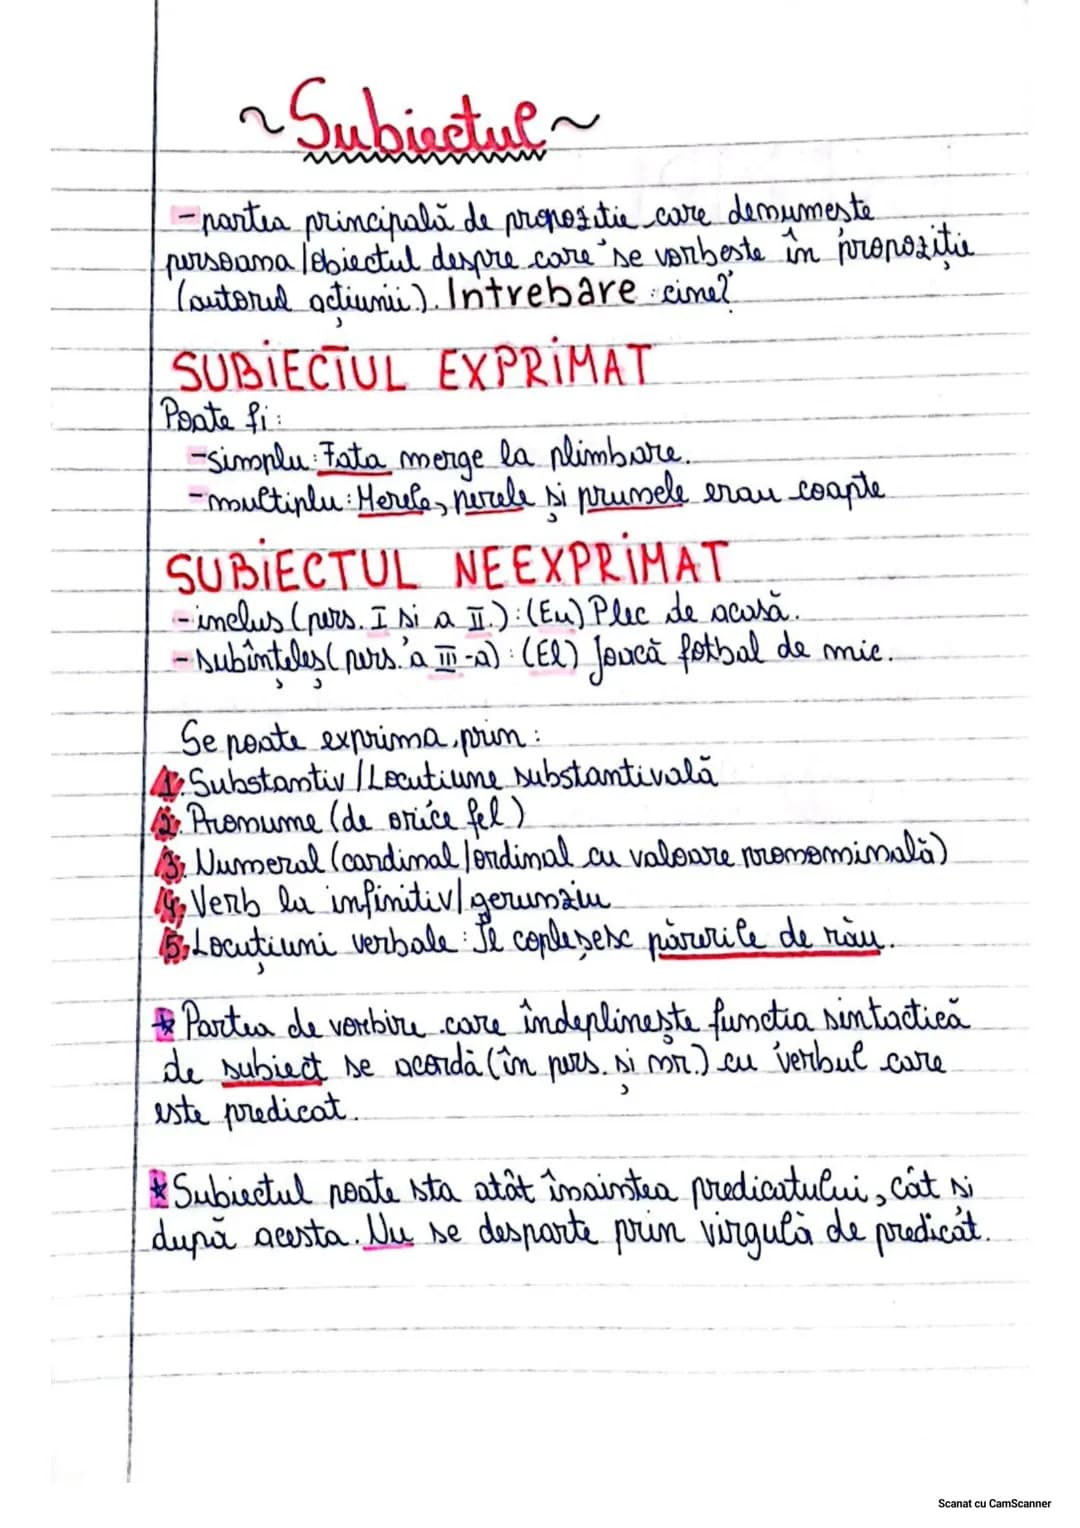 ~Subiectul~
-partea principală de propozitie care denumește
persoana/obiectul despre care se vorbeste în propoziție
(autorul acțiunii). Intrebare: cine?
SUBIECTUL EXPRIMAT
Poate fi:
-simplu: Fata merge la plimbare.
-multiplu: Merele, perele și prunele erau coapte
SUBIECTUL NEEXPRIMAT
-inclus (pers. I si a II.): (Eu) Plec de acasă.
-subînțeleș (pers. a III-a): (El) Joacă fotbal de mic.
Se poate exprima prin:
1. Substantiv/Locutiune substantivală
2. Pronume (de orice fel)
3. Numeral (cardinal/ordinal cu valoare pronominală)
4. Verb la infinitiv/gerunziu
5. Locuțiuni verbale: Îl copleșesc părerile de rău.
★ Partea de vorbire care îndeplinește functia sintactică
de subiect se acordă (în pers. și nr.) cu verbul care
este predicat.
★ Subiectul poate sta atât înaintea predicatului, cât si
după acesta. Nu se desparte prin virgulă de predicat.
Scanat cu CamScanner